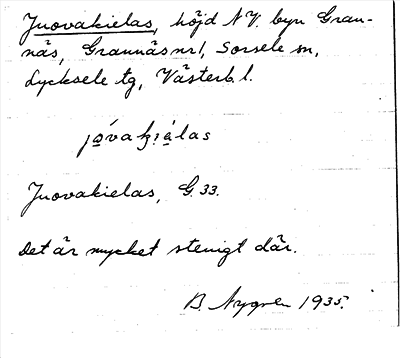 Juovakielas, höjd N.V. byn Gran-
näs, Grannäs nr 1, Sorsele sn,
Lycksele tg, Västerb. l.
Juovakielas, G. 33.
Det är mycket stenigt där.
B. Nygren 1935.